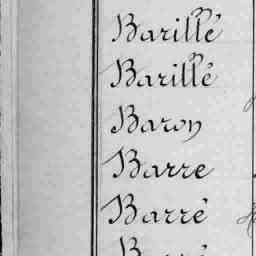 Barillé
Barillé
Baron
Barre
Barré